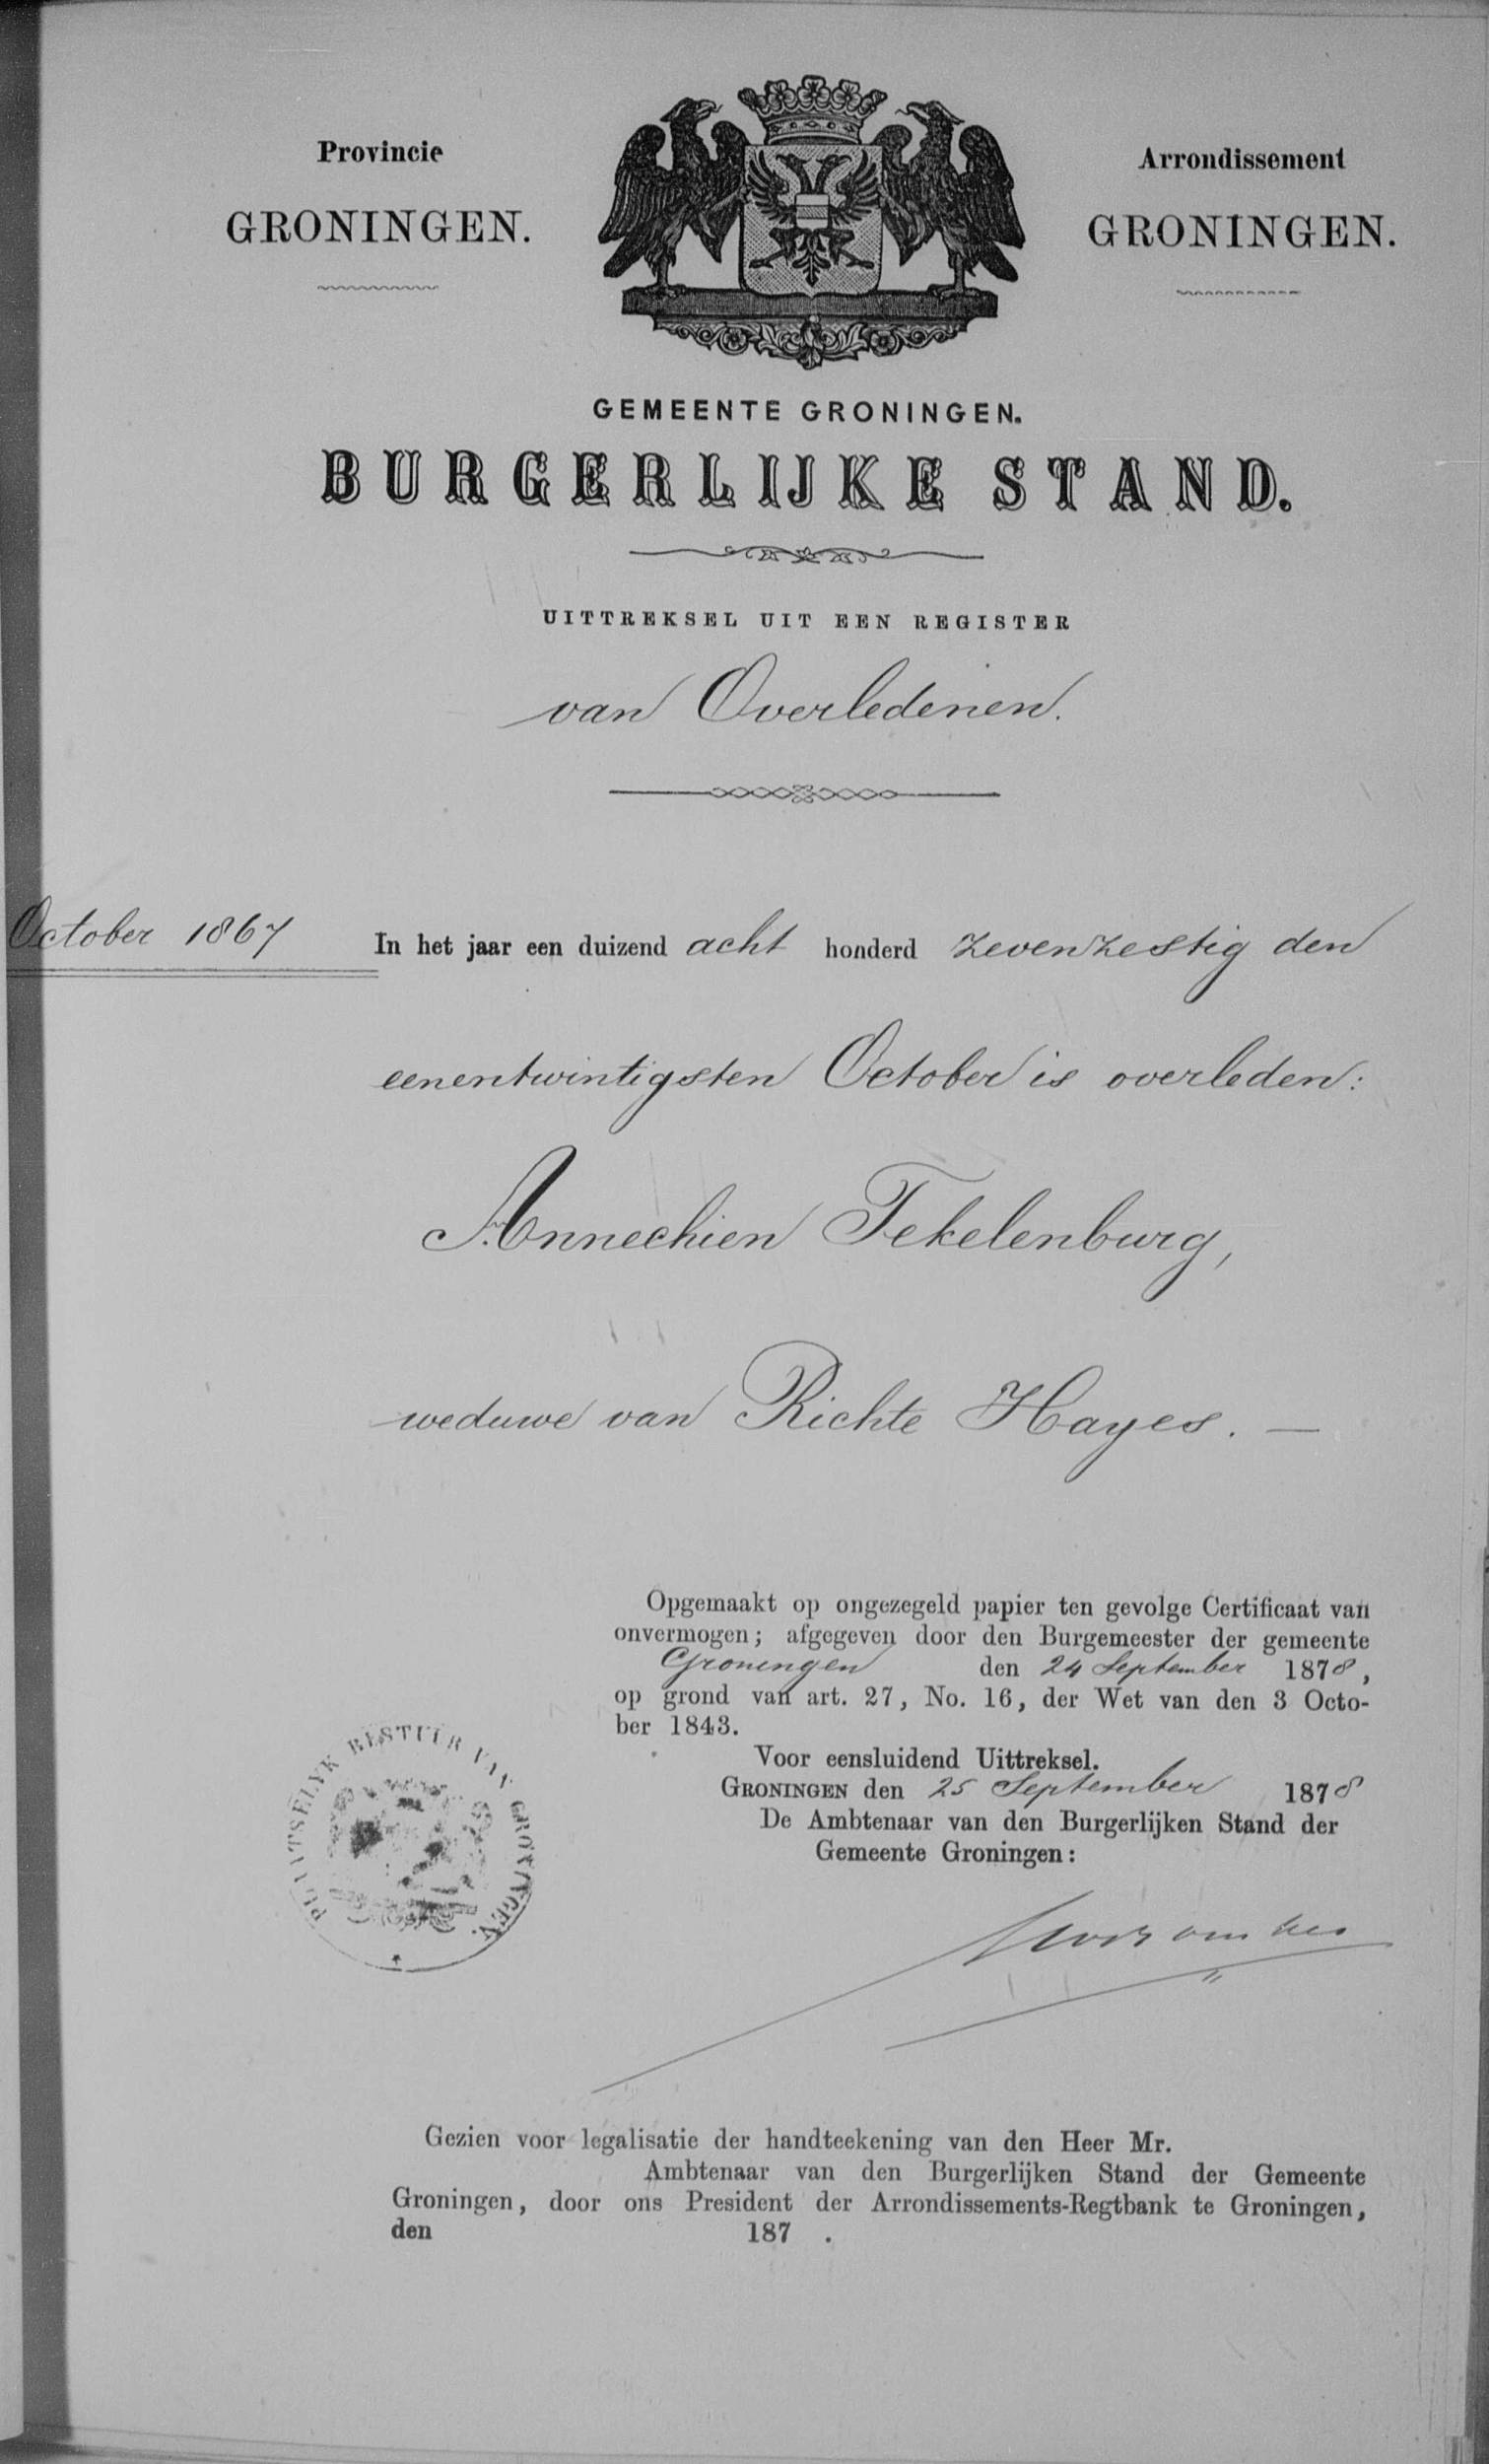 Provincie
GRONINGEN.
Arrondissement
GRONINGEN.
GEMEENTE GRONINGEN.
BURGERLIJKE STAND.
UITTREKSEL UIT EEN REGISTER
van Overledenen.
October 1867
In het jaar een duizend acht honderd zevenzestig den
eenentwintigsten October is overleden:
Annechien Tekelenburg,
weduwe van Richte Hayes. —
Opgemaakt op ongezegeld papier ten gevolge Certificaat van
onvermogen; afgegeven door den Burgemeester der gemeente
Groningen den 24 September 1878,
op grond van art. 27, No. 16, der Wet van den 3 Octo-
ber 1843.
Voor eensluidend Uittreksel.
GRONINGEN den 25 September 1878
De Ambtenaar van den Burgerlijken Stand der
Gemeente Groningen:
PLAATSELYK BESTUUR VAN GRONINGEN.
Gezien voor legalisatie der handteekening van den Heer Mr.
Ambtenaar van den Burgerlijken Stand der Gemeente
Groningen, door ons President der Arrondissements-Regtbank te Groningen,
den 187 .